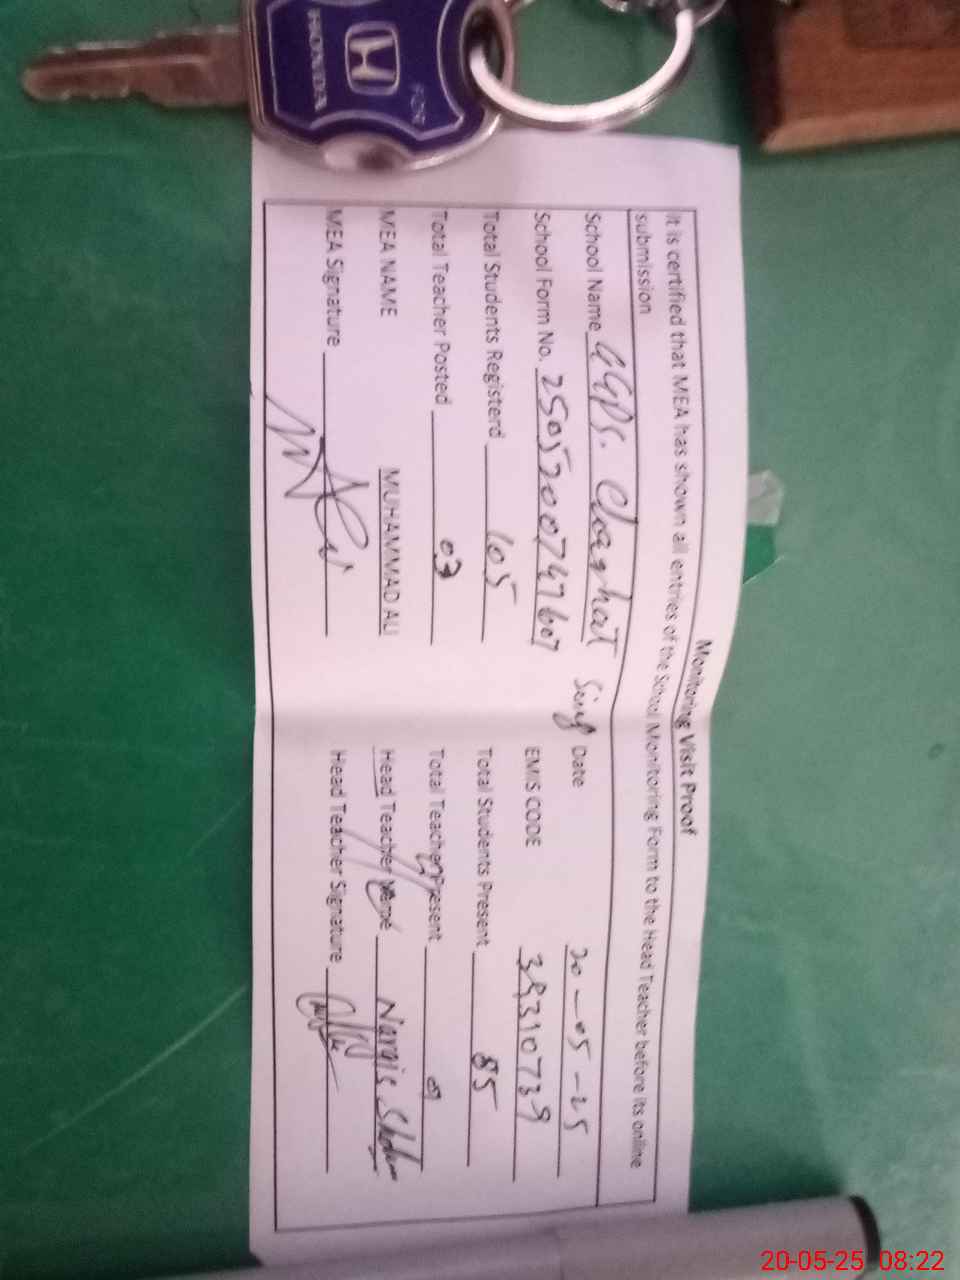 HONDA
Monitoring Visit Proof
It is certified that MEA has shown all entries of the School Monitoring Form to the Head Teacher before its online
submission
School Name GGPS. Date 20-05-25
School Form No. EMIS CODE 39310739
Total Students Registerd 105 Total Students Present 85
Total Teacher Posted 03 Total Teacher Present
MEA NAME MUHAMMAD ALI Head Teacher Name Nargis
MEA Signature Head Teacher Signature
20-05-25 08:22